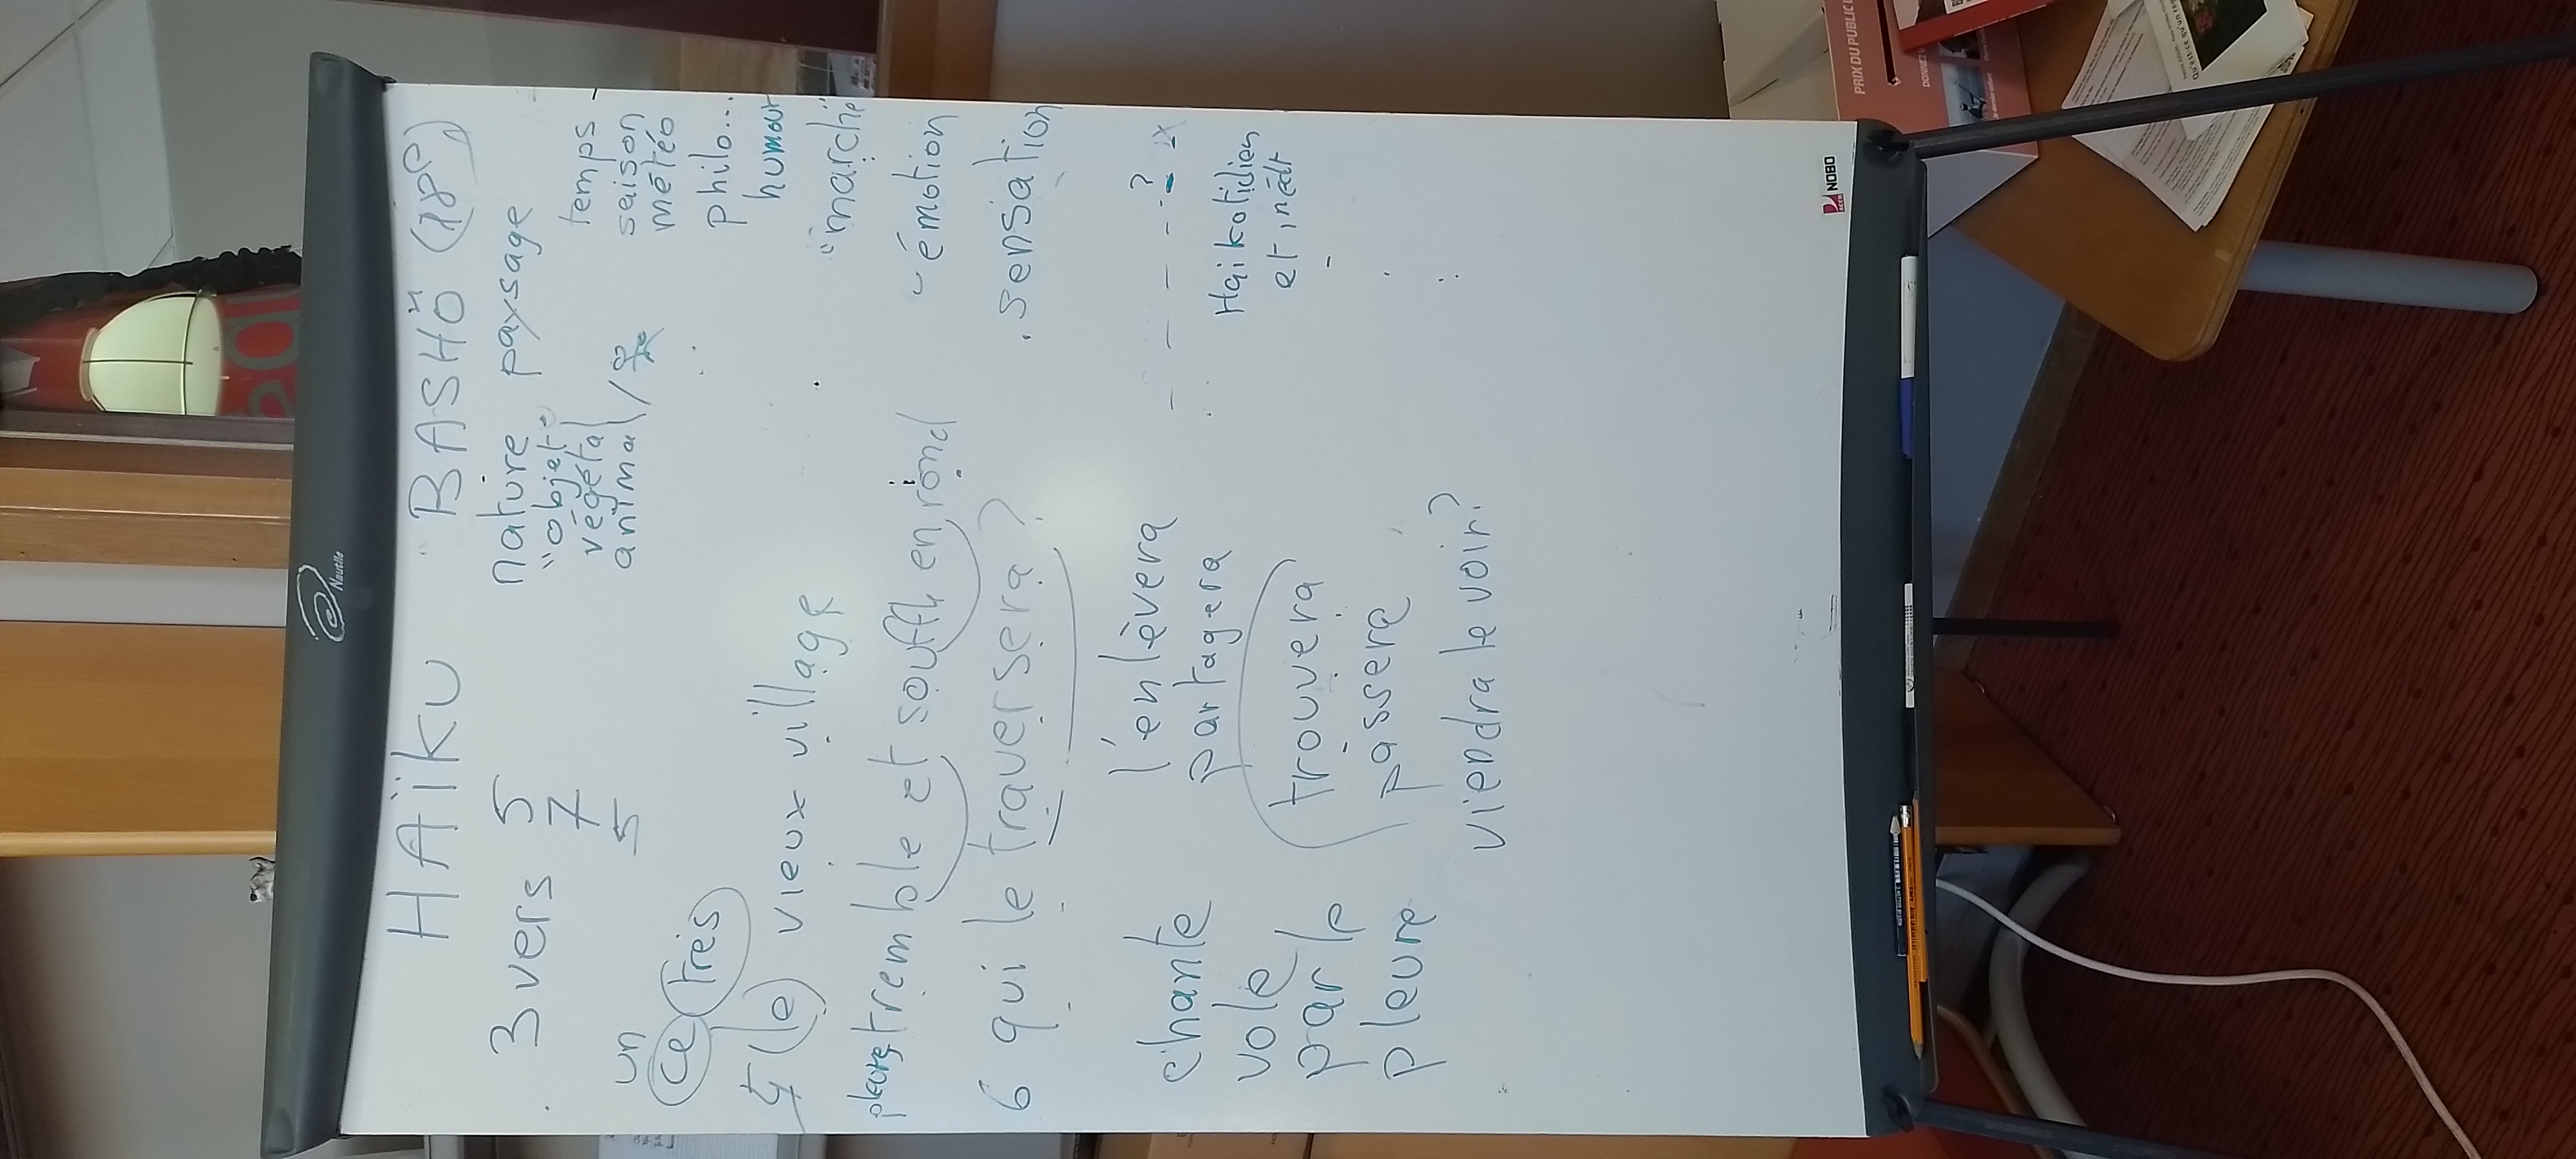 Nautile
HAÏKU BASHÔ (18e)
3 vers 5 nature paysage
7 "objet"
5 végétal
animal /
temps
saison
météo
philo...
humour
un
ce très
4 (le) vieux village
"marché"
pleure, tremble et souffle en rond
émotion
6 qui le traversera ?
sensation
chante l'enlèvera
vole partagera
parle trouvera
pleure passera
viendra le voir ?
?
Haikotidien
et inédit
ACCO NOBO
PRIX DU PUBLIC
DONNEZ
Qu'est-ce qu'un